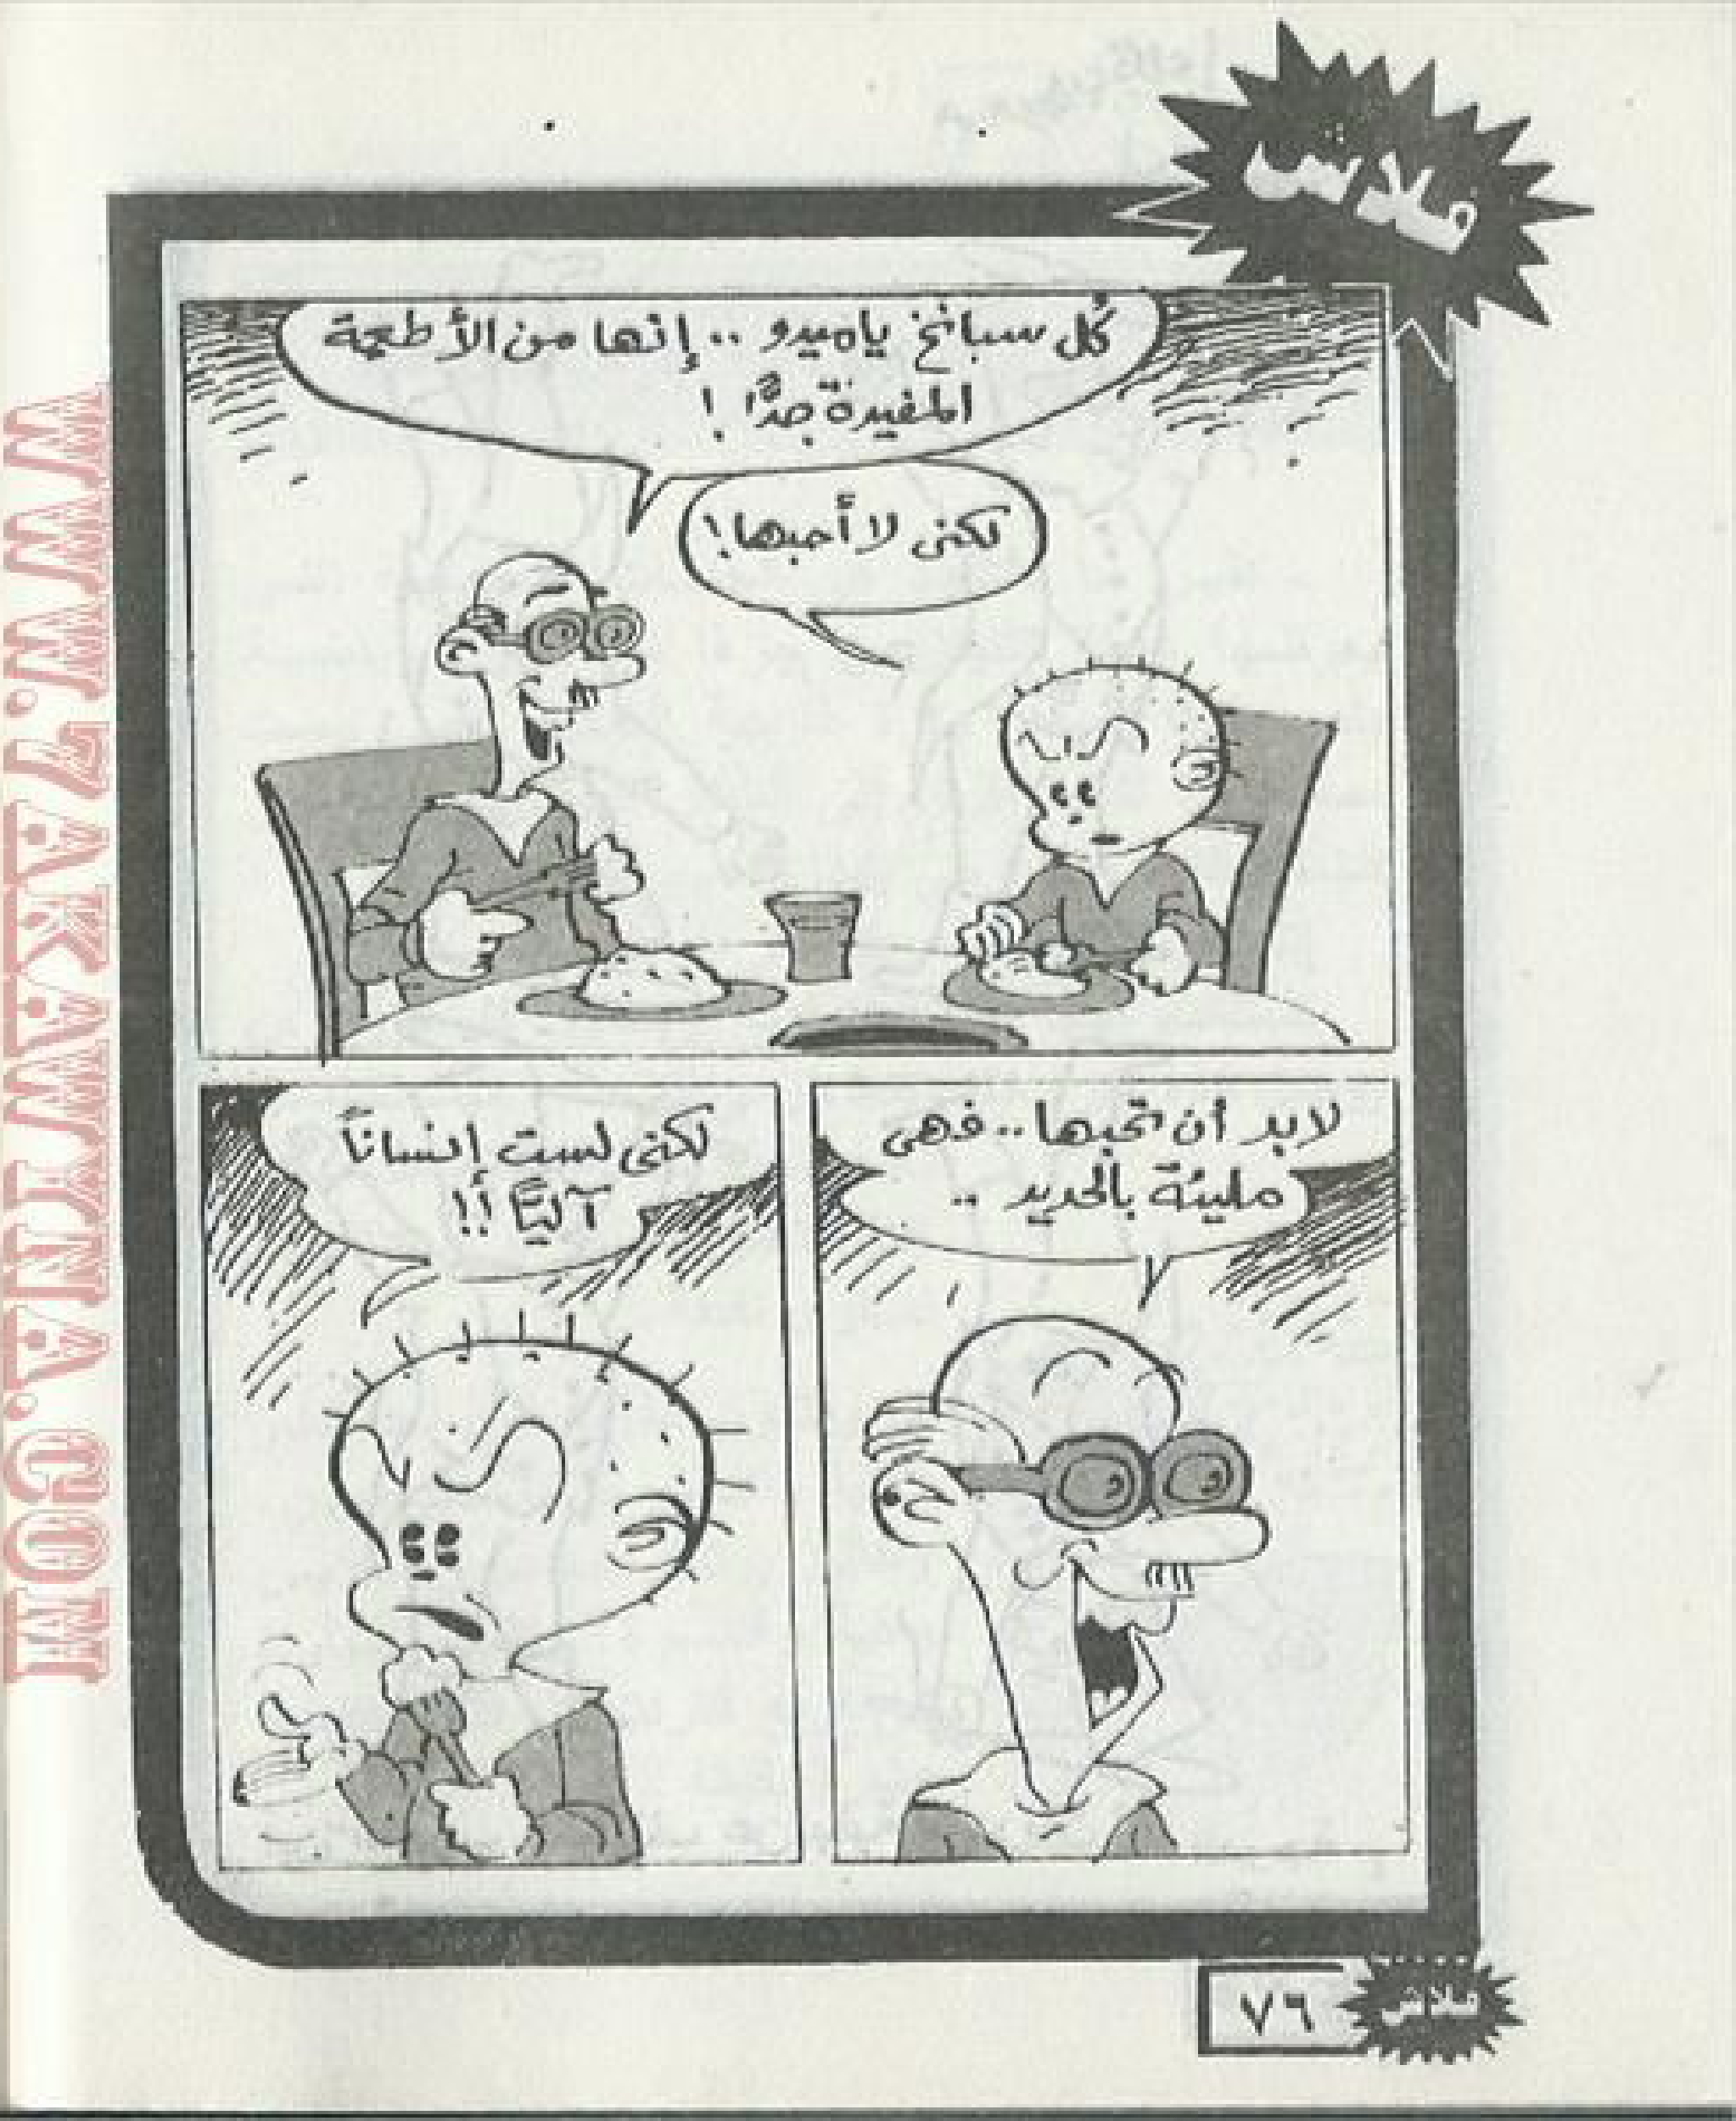 فلاش
كُل سبانخ ياميدو .. إنها من الأطعمة
المفيدة جدًّا !
لكنى لا أحبها !
لابد أن تحبها .. فهى
مليئة بالحديد ..
لكنى لست إنساناً
آليًّا !!
٧٦
فلاش
WWW.7AKAWTNA.COM